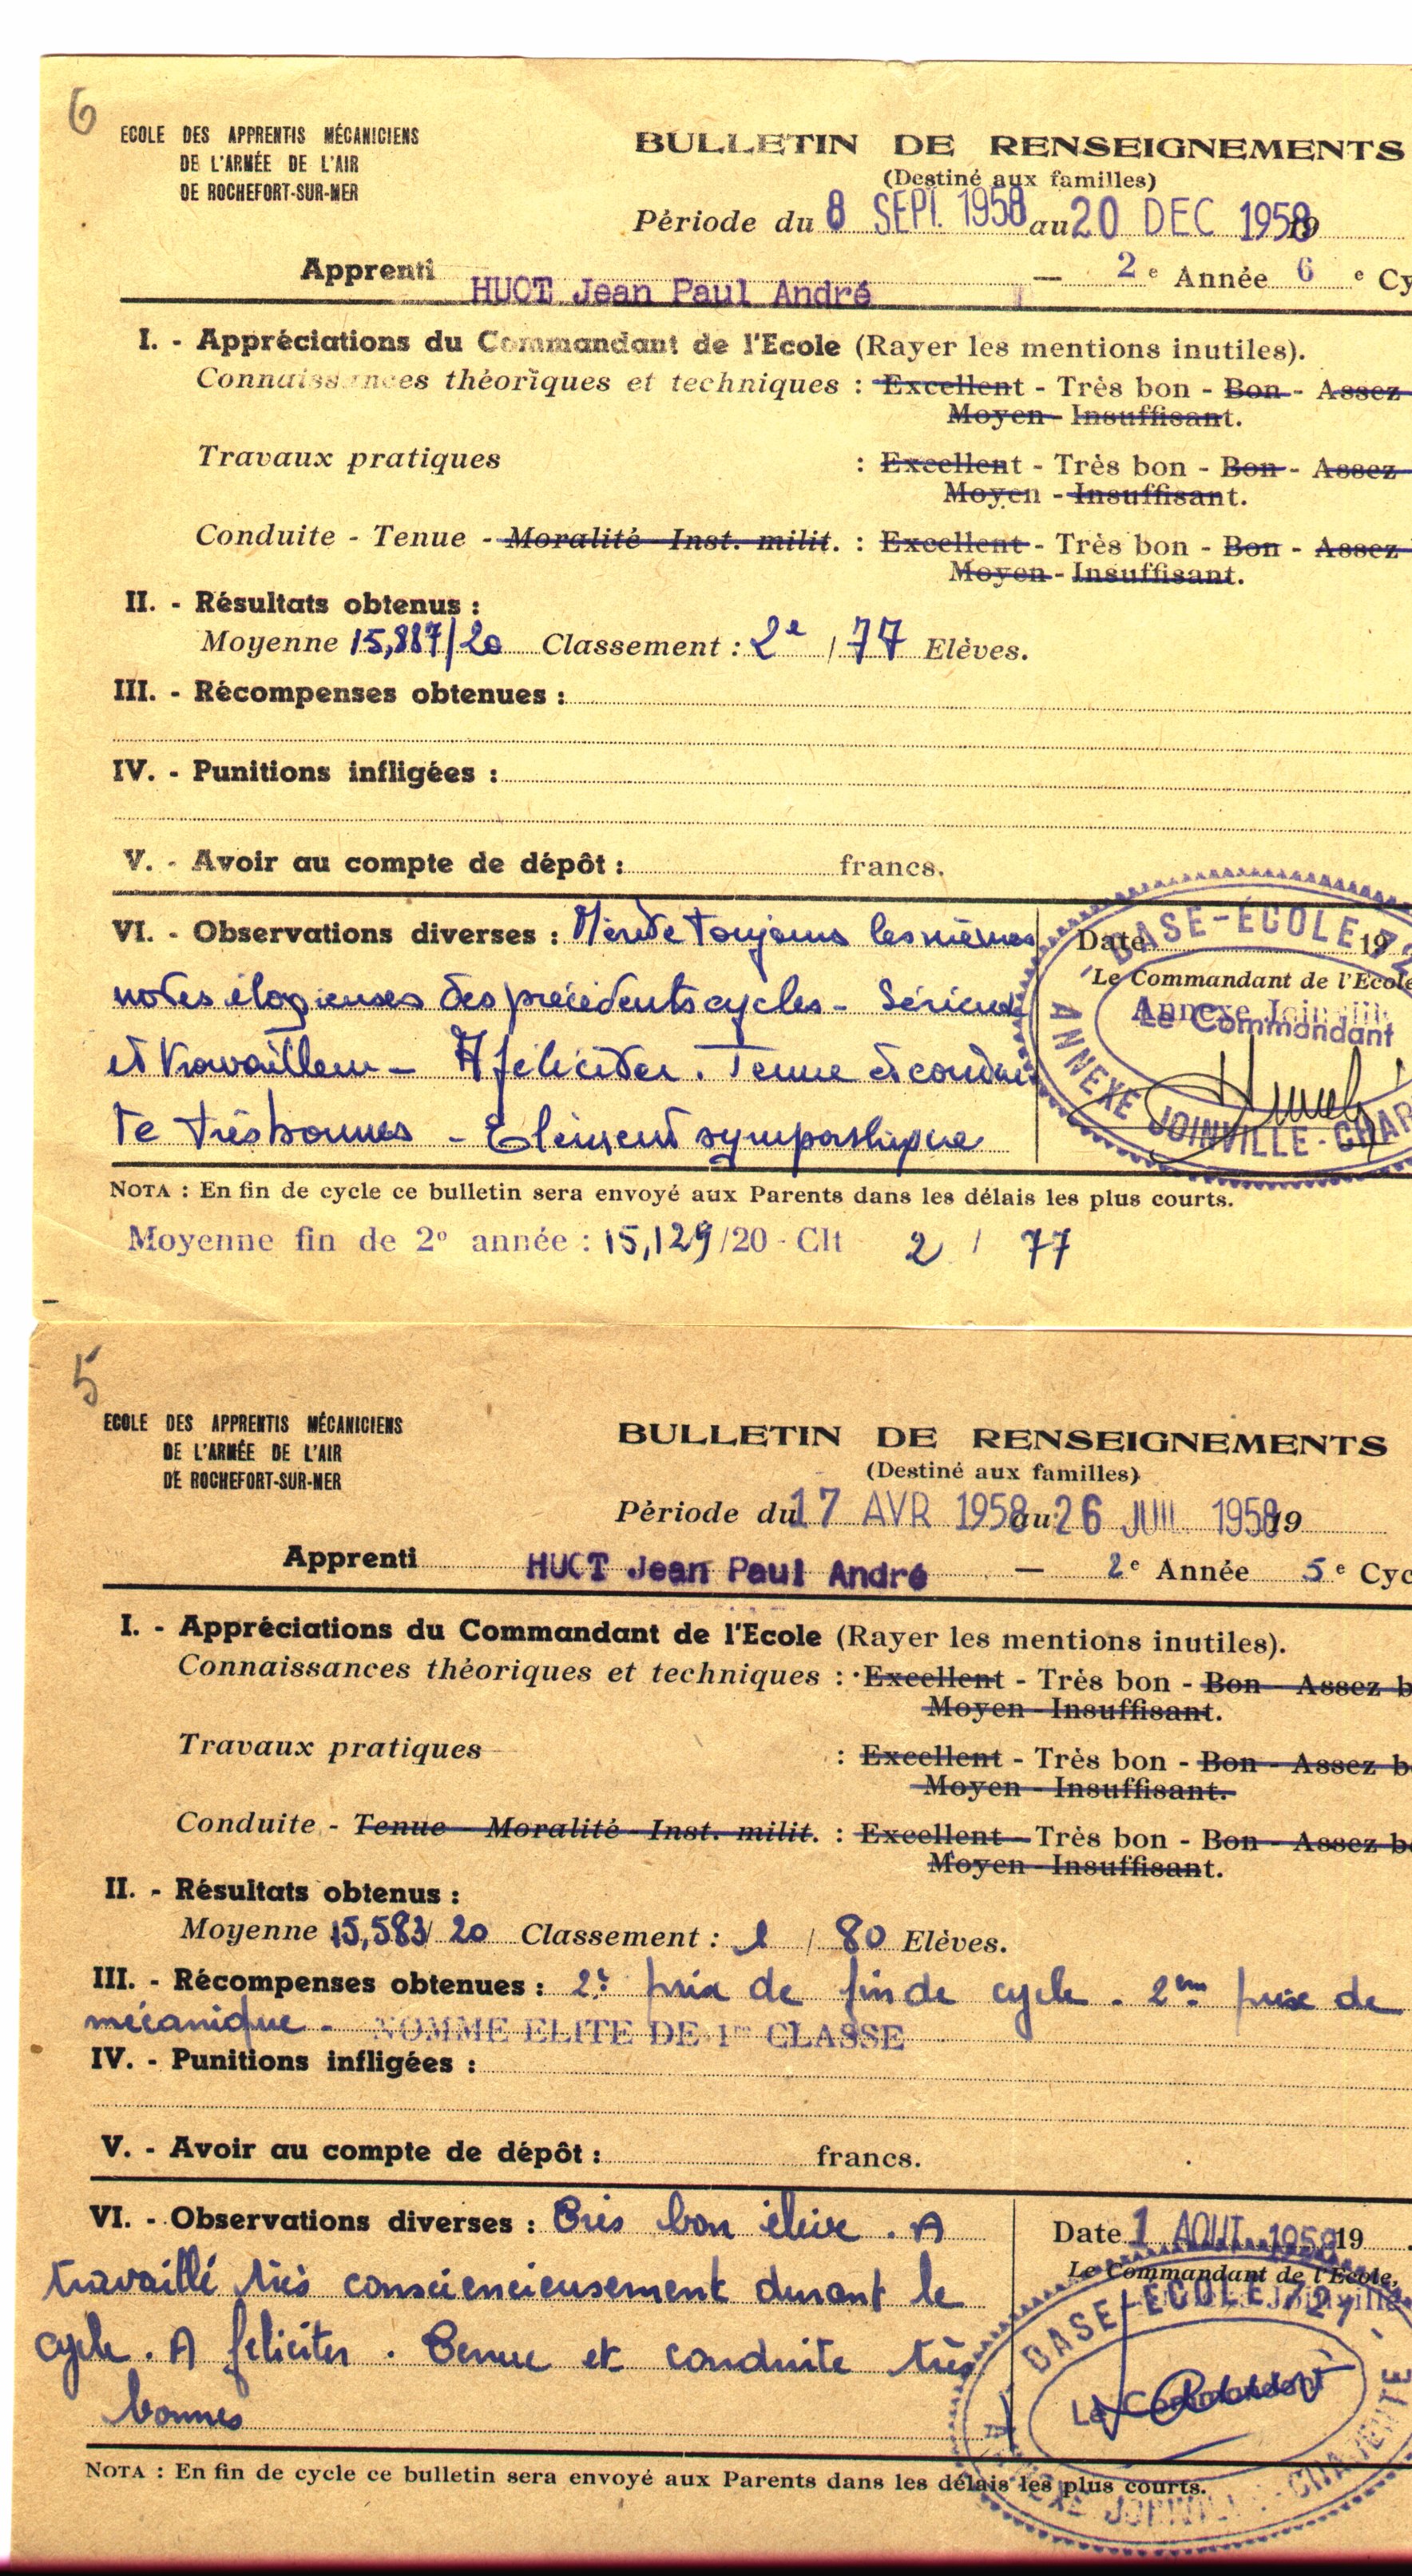 6
ECOLE DES APPRENTIS MÉCANICIENS
DE L'ARMÉE DE L'AIR
DE ROCHEFORT-SUR-MER
BULLETIN DE RENSEIGNEMENTS
(Destiné aux familles)
Période du 8 SEPT. 1958 au 20 DEC 1958 19
Apprenti HUOT Jean Paul André — 2 e Année 6 e Cy
I. - Appréciations du Commandant de l'Ecole (Rayer les mentions inutiles).
Connaissances théoriques et techniques : Excellent - Très bon - Bon - Assez
Moyen - Insuffisant.
Travaux pratiques : Excellent - Très bon - Bon - Assez
Moyen - Insuffisant.
Conduite - Tenue - Moralité - Inst. milit. : Excellent - Très bon - Bon - Assez
Moyen - Insuffisant.
II. - Résultats obtenus :
Moyenne 15,887/20 Classement : 2e / 77 Elèves.
III. - Récompenses obtenues :
IV. - Punitions infligées :
V. - Avoir au compte de dépôt : francs.
VI. - Observations diverses : Mérite toujours les mêmes
notes élogieuses des précédents cycles - Sérieux
et travailleur - A féliciter. Tenue et condui
te très bonnes - Elément sympathique
Date 19
Le Commandant de l'Ecole
Annexe Joinville
Le Commandant
BASE-ÉCOLE 72
ANNEXE JOINVILLE-CHAR
NOTA : En fin de cycle ce bulletin sera envoyé aux Parents dans les délais les plus courts.
Moyenne fin de 2e année : 15,129/20 - Clt 2 / 77
5
ECOLE DES APPRENTIS MÉCANICIENS
DE L'ARMÉE DE L'AIR
DE ROCHEFORT-SUR-MER
BULLETIN DE RENSEIGNEMENTS
(Destiné aux familles)
Période du 17 AVR 1958 au 26 JUIL 1958 19
Apprenti HUOT Jean Paul André — 2e Année 5 e Cyc
I. - Appréciations du Commandant de l'Ecole (Rayer les mentions inutiles).
Connaissances théoriques et techniques : Excellent - Très bon - Bon - Assez b
Moyen - Insuffisant.
Travaux pratiques : Excellent - Très bon - Bon - Assez b
Moyen - Insuffisant.
Conduite - Tenue - Moralité - Inst. milit. : Excellent - Très bon - Bon - Assez b
Moyen - Insuffisant.
II. - Résultats obtenus :
Moyenne 15,583/20 Classement : 1 / 80 Elèves.
III. - Récompenses obtenues : 2e prix de fin de cycle - 2em prix de
mécanique - NOMME ELITE DE 1re CLASSE
IV. - Punitions infligées :
V. - Avoir au compte de dépôt : francs.
VI. - Observations diverses : Très bon élève. A
travaillé très consciencieusement durant le
cycle. A féliciter. Tenue et conduite très
bonnes
Date 1 AOUT 1958 19
Le Commandant de l'Ecole,
Joinville
Le Commandant
BASE-ÉCOLE 721
ANNEXE JOINVILLE-CHARENTE
NOTA : En fin de cycle ce bulletin sera envoyé aux Parents dans les délais les plus courts.